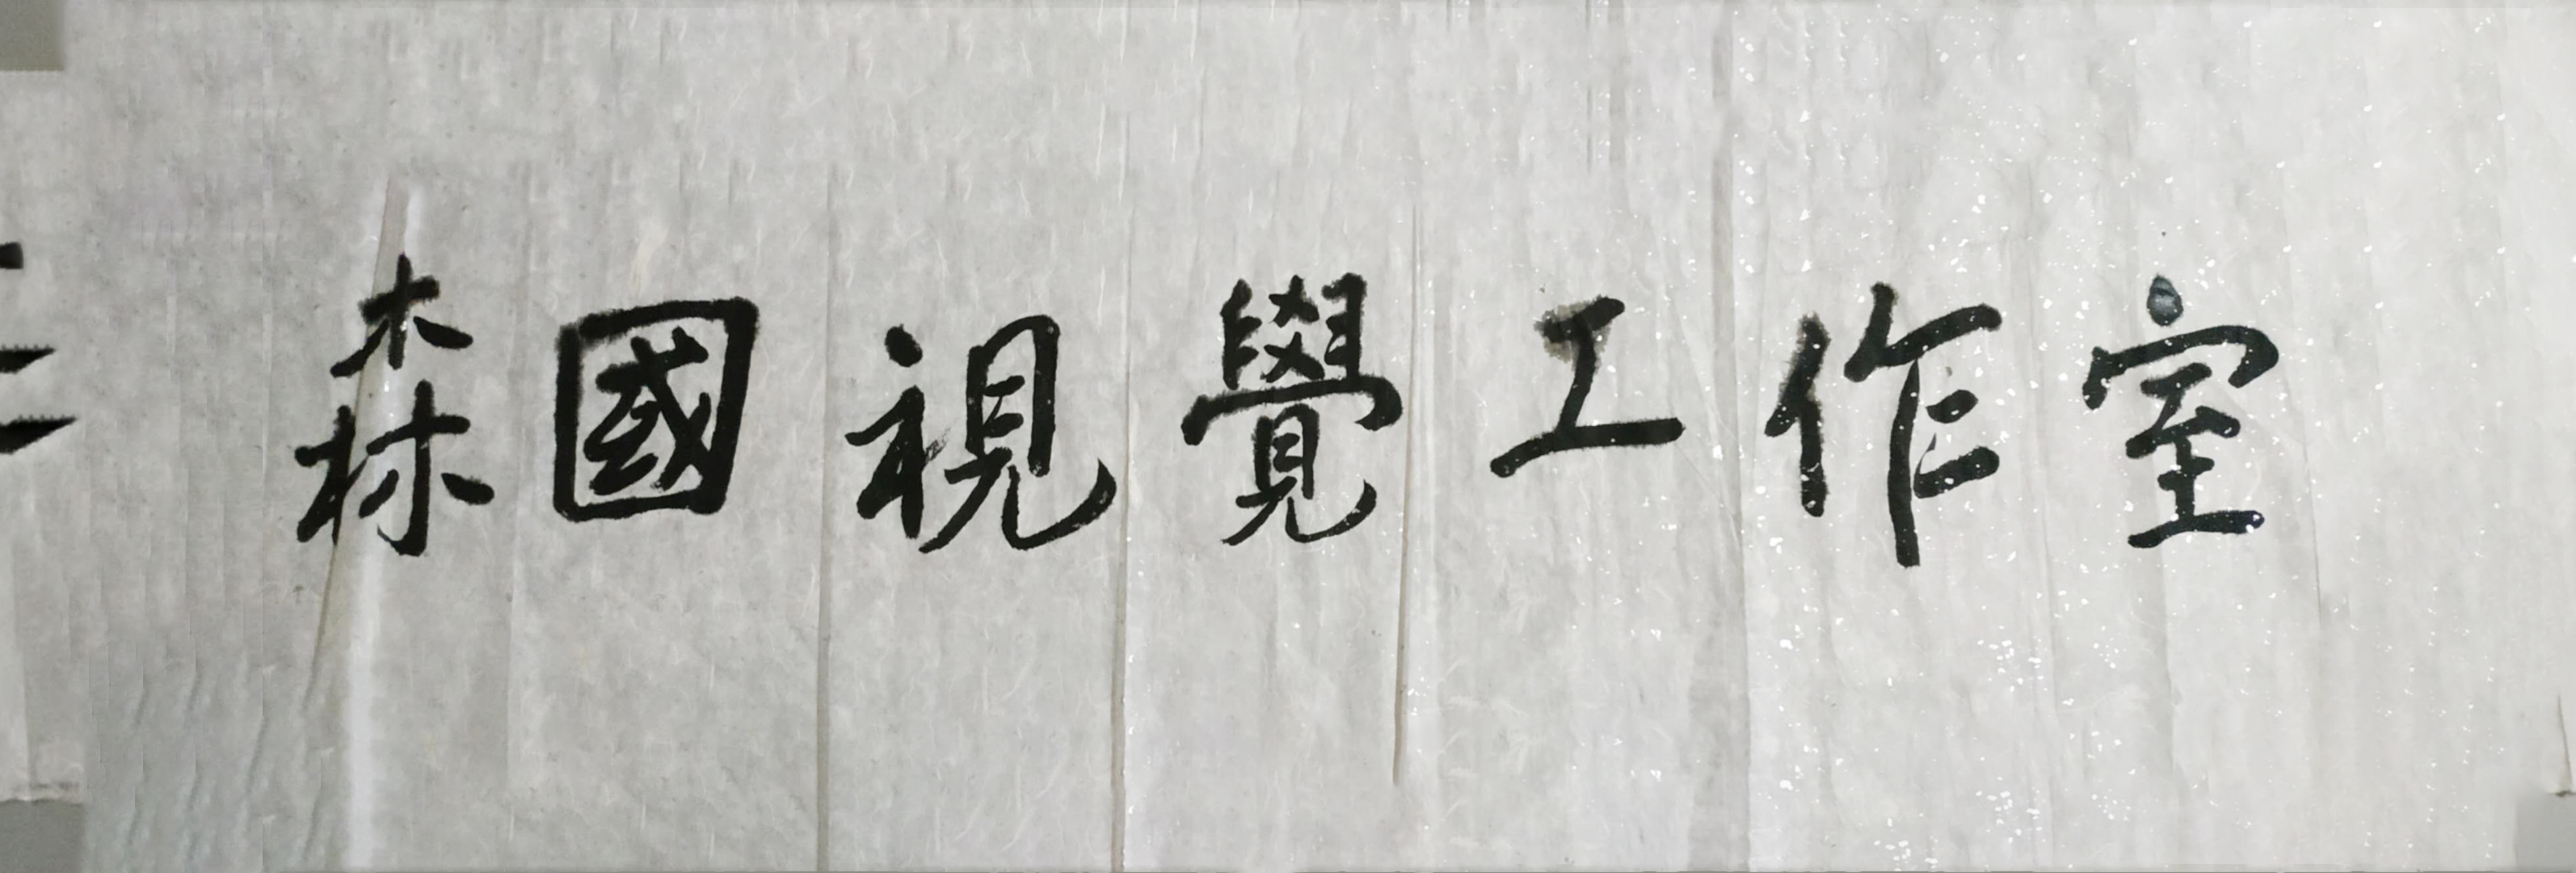 森國視覺工作室